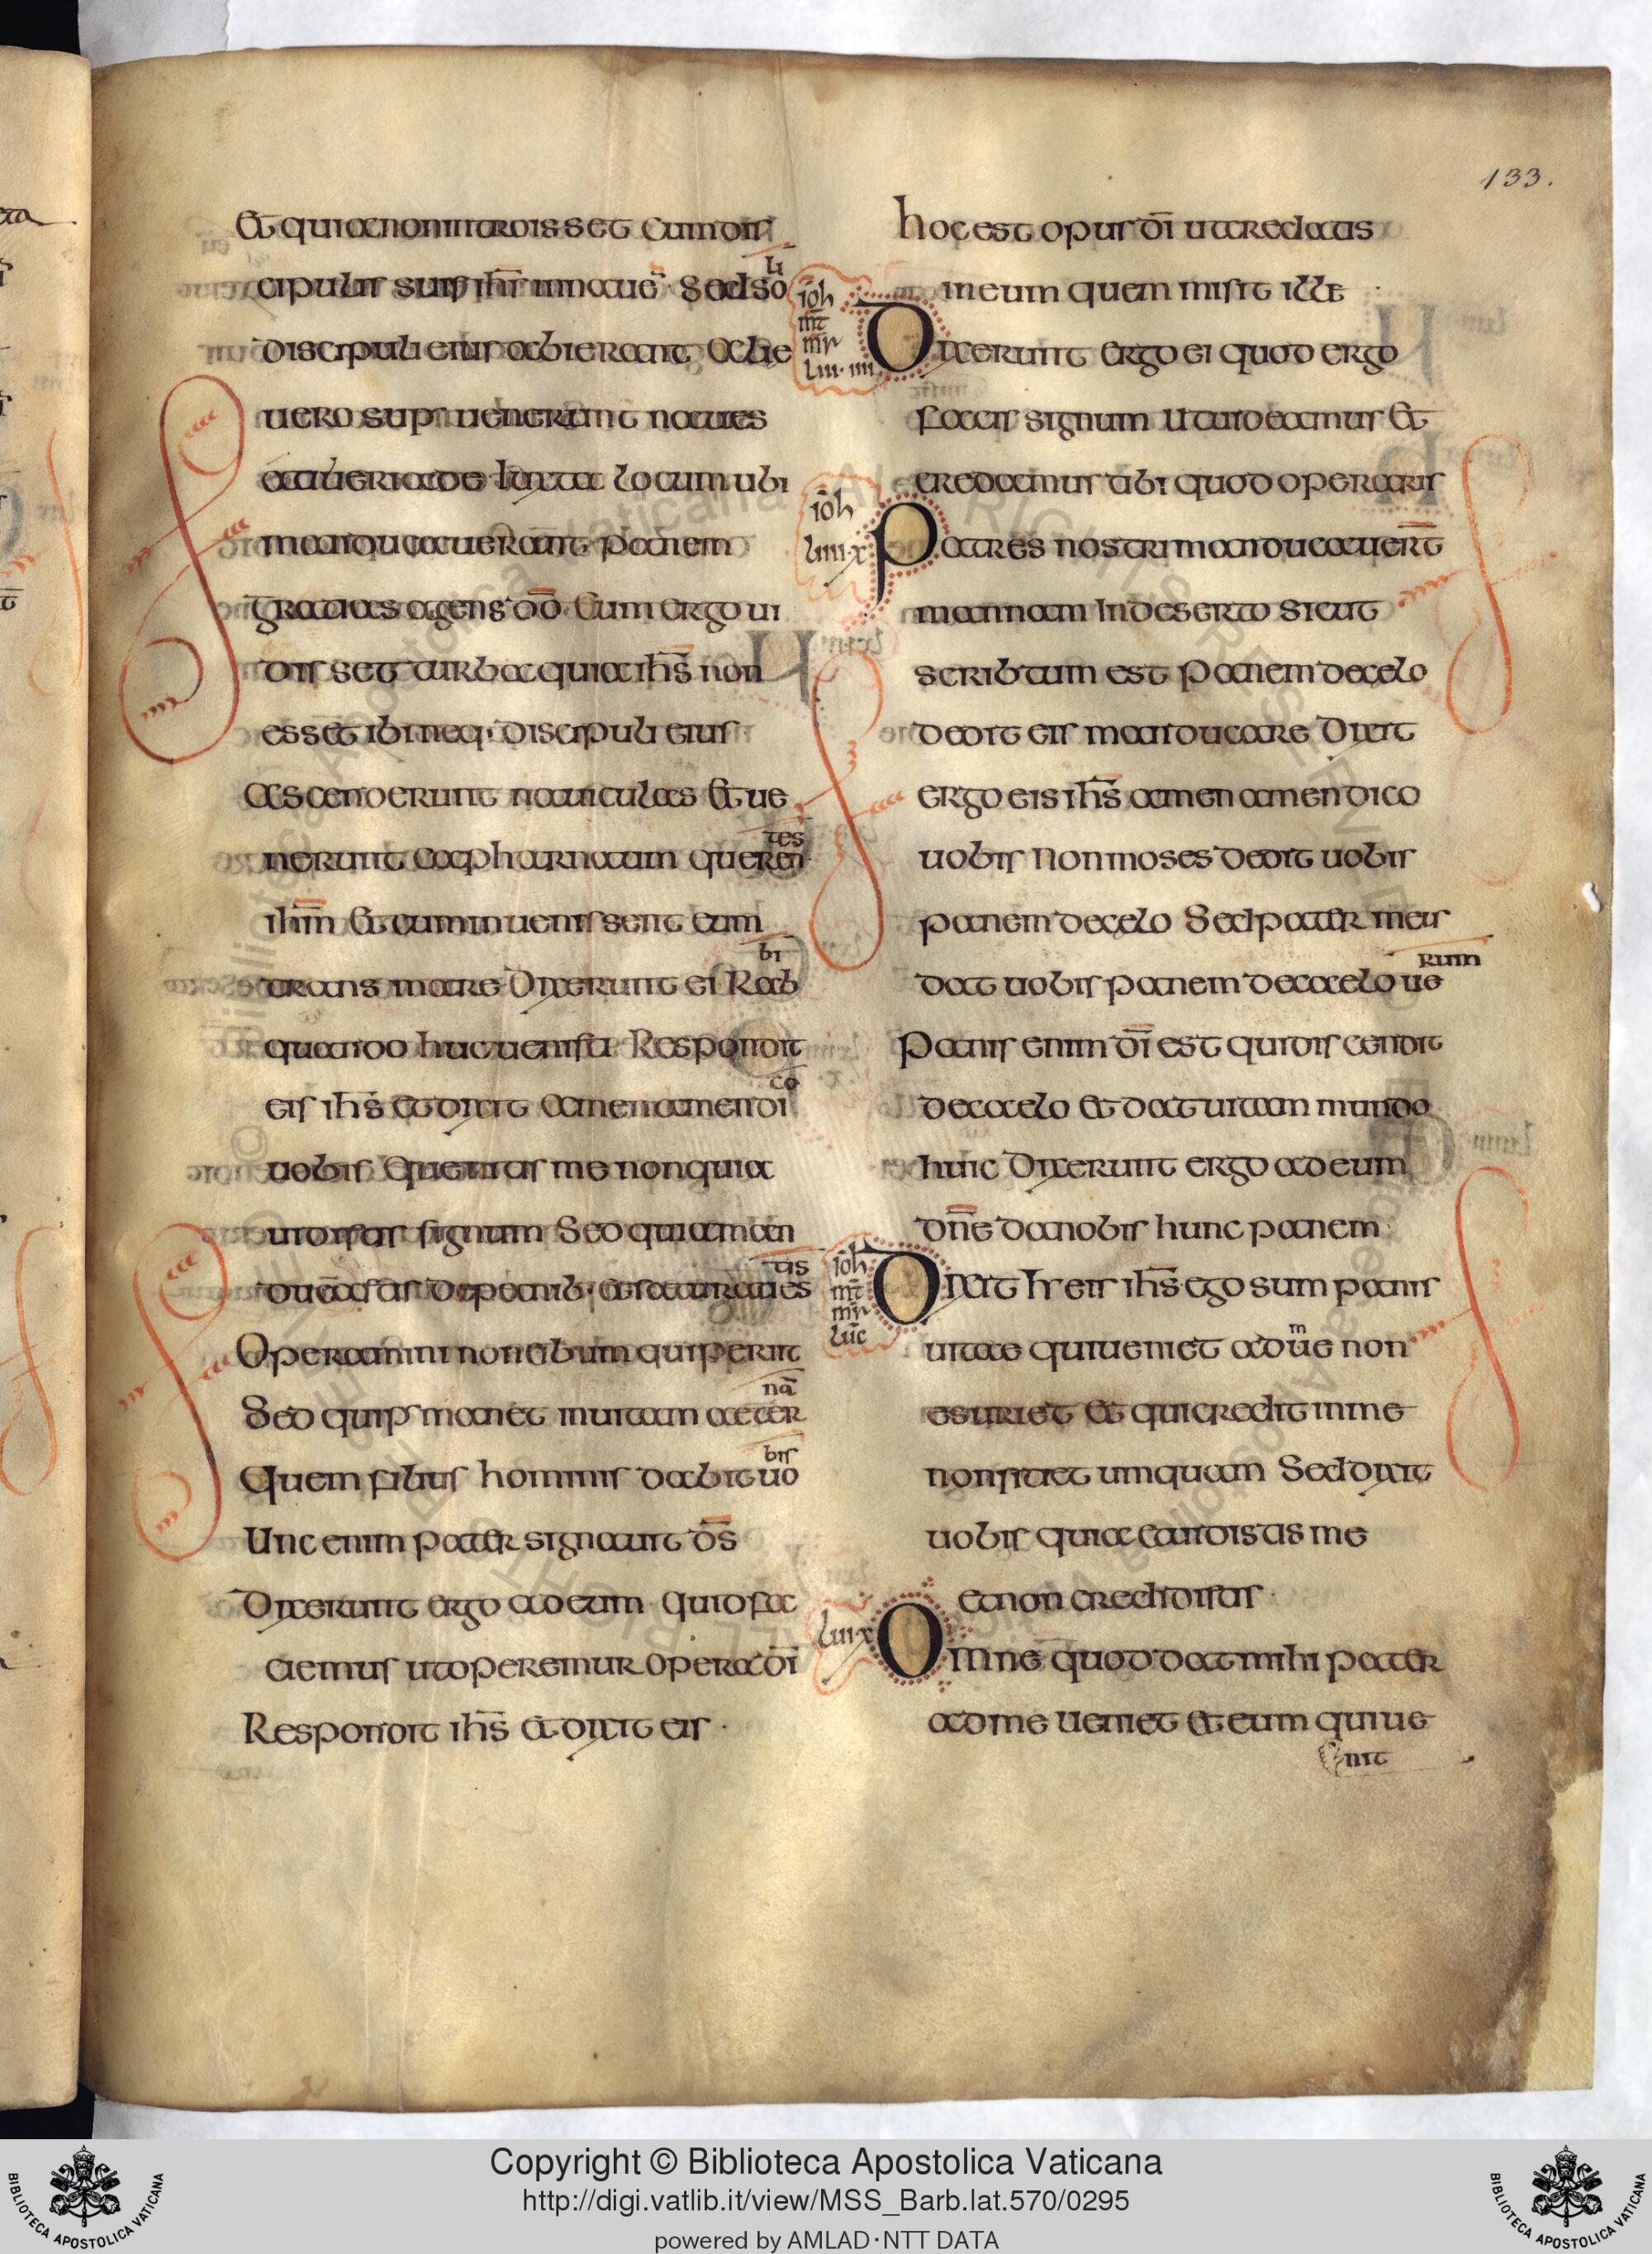 133.
Et quia non introisset cum dis
cipulis suis ihm in naue · Sed so
li
discipuli eius abierant Aliæ
uero sup uenerunt naues
a tiberiade Iuxta locum ubi
manducauerant panem
gratias agens dō · Cum ergo ui
dis set turba quia ihs̄ non
esset ibi neq· discipuli eius
Ascenderunt nauiculas Et ue
nerunt capharnaum queren
tes
ihm̄ Et cum inuenissent eum
trans mare Dixerunt ei Rab
bi
quando huc uenisti Respondit
eis ihs̄ et dixit Amen amen di
co
uobis Queritis me non quia
uidistis signum Sed quia man
ducastis de panib· et saturati es
tis
Operamini non cibum qui perit
Sed qui p manet in uitam aeter
nā
Quem filius hominis dabit uo
bis
Unc enim pater signauit d̄s
Dixerunt ergo ad eum quid fa
ciemus ut operemur opera dī
Respondit ihs̄ et dixit eis ·
hoc est opus dī ut credatis
in eum quem misit ille
iōh
mt̄
mr
lui · iiii
Dixerunt ergo ei quod ergo
facis signum Ut uideamus Et
credamus tibi quod operaris
iōh
luiii · x
Patres nostri manducauer̄t
mannam In deserto Sicut
scribtum est Panem de celo
dedit eis manducare Dixit
ergo eis ihs̄ amen amen dico
uobis Non moses dedit uobis
panem de celo Sed pater meus
dat uobis panem de caelo ue
rum
Panis enim dī est qui discendit
de caelo et dat uitam mundo
hunc Dixerunt ergo ad eum
dn̄e da nobis hunc panem
iōh
mt̄
mr
luc
Dixit h eis ihs̄ ego sum panis
uitae qui ueniet ad me non
esuriet et qui credit in me
non sitiet umquam Sed dixit
uobis quia et uidistis me
et non credidistis ·
lui · x
Omne quod dat mihi pater
ad me ueniet et eum qui ue
nit
Copyright © Biblioteca Apostolica Vaticana
http://digi.vatlib.it/view/MSS_Barb.lat.570/0295
powered by AMLAD·NTT DATA
BIBLIOTECA APOSTOLICA VATICANA
BIBLIOTECA APOSTOLICA VATICANA